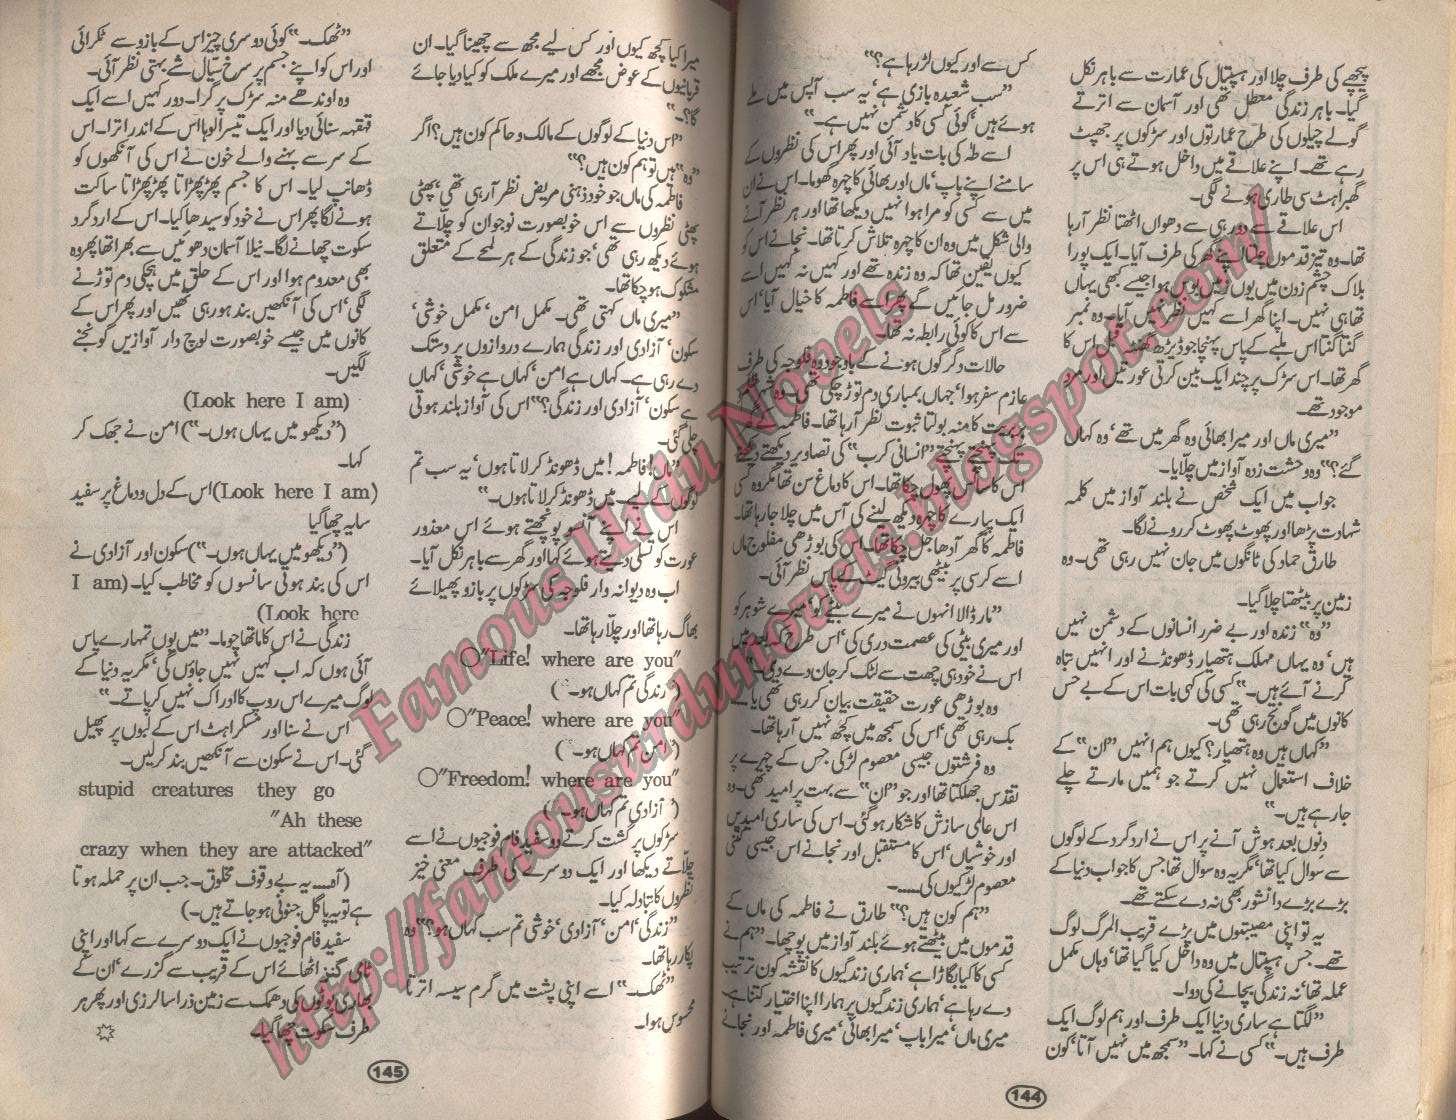 پیچھے کی طرف چلا اور ہسپتال کی عمارت سے باہر نکل
گیا۔ باہر زندگی معطل تھی اور آسمان سے اترتے
گولے چیلوں کی طرح عمارتوں اور سڑکوں پر جھپٹ
رہے تھے۔ اپنے علاقے میں داخل ہوتے ہی اس پر
گھبراہٹ سی طاری ہونے لگی۔
اس علاقے سے دور ہی سے دھواں اٹھتا نظر آرہا
تھا۔ وہ تیز قدموں چلتا اپنے گھر کی طرف آیا۔ ایک پورا
بلاک چشم زدن میں یوں زمیں بوس ہوا جیسے کبھی یہاں
تھا ہی نہیں۔ اپنا گھر اسے کہیں نظر نہیں آیا۔ وہ نمبر
گنتا گنتا اس ملبے کے پاس پہنچا جو ڈیڑھ گھنٹہ قبل اس کا
گھر تھا۔ اس سڑک پر چند ایک بین کرتی عورتیں اور مرد
موجود تھے۔
”میری ماں اور میرا بھائی وہ گھر میں تھے‘ وہ کہاں
گئے؟“ وہ وحشت زدہ آواز میں چلایا۔
جواب میں ایک شخص نے بلند آواز میں کلمہ
شہادت پڑھا اور پھوٹ پھوٹ کر رونے لگا۔
طارق حماد کی ٹانگوں میں جان نہیں رہی تھی۔ وہ
زمین پر بیٹھتا چلا گیا۔
”وہ“ زندہ اور بے ضرر انسانوں کے دشمن نہیں
ہیں‘ وہ یہاں مہلک ہتھیار ڈھونڈنے اور انہیں تباہ
کرنے آئے ہیں۔“ کسی کی کہی بات اس کے بے حس
کانوں میں گونج رہی تھی۔
”کہاں ہیں وہ ہتھیار؟ کیوں ہم انہیں ”ان“ کے
خلاف استعمال نہیں کرتے جو ہمیں مارتے چلے
جارہے ہیں۔“
دنوں بعد ہوش آنے پر اس نے اردگرد کے لوگوں
سے سوال کیا تھا‘ مگر یہ وہ سوال تھا جس کا جواب دنیا کے
بڑے بڑے دانشور بھی نہ دے سکتے تھے۔
یہ تو اپنی مصیبتوں میں پڑے قریب المرگ لوگ
تھے۔ جس ہسپتال میں وہ داخل کیا گیا تھا‘ وہاں مکمل
عملہ تھا‘ نہ زندگی بچانے کی دوا۔
”لگتا ہے ساری دنیا ایک طرف اور ہم لوگ ایک
طرف ہیں۔“ کسی نے کہا۔ ”سمجھ میں نہیں آتا‘ کون
کس سے اور کیوں لڑ رہا ہے؟“
”سب شعبدہ بازی ہے‘ یہ سب آپس میں ملے
ہوئے ہیں‘ کوئی کسی کا دشمن نہیں ہے۔“
اسے طہٰ کی بات یاد آئی اور پھر اس کی نظروں کے
سامنے اپنے باپ‘ ماں اور بھائی کا چہرہ گھوما۔ اس نے ان
میں سے کسی کو مرا ہوا نہیں دیکھا تھا اور ہر نظر آنے
والی شکل میں وہ ان کا چہرہ تلاش کرتا تھا۔ نجانے اس کو
کیوں یقین تھا کہ وہ زندہ تھے اور کہیں نہ کہیں اسے
ضرور مل جائیں گے پھر اسے فاطمہ کا خیال آیا‘ اس
سے اس کا کوئی رابطہ نہ تھا۔
حالات دگرگوں ہونے کے باوجود وہ فلوجہ کی طرف
عازم سفر ہوا‘ جہاں بمباری دم توڑ چکی تھی۔ وہ شہر
بربریت کا منہ بولتا ثبوت نظر آرہا تھا۔ فاطمہ کے
تک پہنچتے پہنچتے ”انسانی کرب“ کی تصاویر دیکھتے دیکھتے
اس کا سانس پھول چکا تھا۔ اس کا دماغ سن تھا مگر وہ کسی
ایک پیارے کا چہرہ دیکھ لینے کی آس میں چلا جا رہا تھا۔
فاطمہ کا گھر آدھا جل چکا تھا۔ اس کی بوڑھی مفلوج ماں
اسے کرسی پر بیٹھی بیرونی گیٹ کے پاس نظر آئی۔
”مار ڈالا انہوں نے میرے بیٹے کو‘ میرے شوہر کو
اور میری بیٹی کی عصمت دری کی‘ اس طرح کہ بعد میں
اس نے خود ہی چھت سے لٹک کر جان دے دی۔“
وہ بوڑھی عورت حقیقت بیان کر رہی تھی یا
بک رہی تھی‘ اس کی سمجھ میں کچھ نہیں آرہا تھا۔
وہ فرشتوں جیسی معصوم لڑکی جس کے چہرے پر
تقدس جھلکتا تھا اور جو ”ان“ سے بہت پر امید تھی۔ وہ
اس عالمی سازش کا شکار ہو گئی۔ اس کی ساری امیدیں
اور خوشیاں‘ اس کا مستقبل اور نجانے اس جیسی کتنی
معصوم لڑکیوں کی.....
”ہم کون ہیں؟“ طارق نے فاطمہ کی ماں کے
قدموں میں بیٹھتے ہوئے بلند آواز میں پوچھا۔ ”ہم نے
کسی کا کیا بگاڑا ہے‘ ہماری زندگیوں کا نقشہ کون ترتیب
دے رہا ہے‘ ہماری زندگیوں پر ہمارا اپنا اختیار کتنا ہے
میری ماں‘ میرا باپ‘ میرا بھائی‘ میری فاطمہ اور نجانے
144
میرا کیا کچھ کیوں اور کس لیے مجھ سے چھینا گیا۔ ان
قربانیوں کے عوض مجھے اور میرے ملک کو کیا دیا جائے
گا؟۔“
”اس دنیا کے لوگوں کے مالک و حاکم کون ہیں؟ اگر
”وہ“ ہیں تو ہم کون ہیں؟“
فاطمہ کی ماں جو خود ذہنی مریض نظر آرہی تھی‘ پھٹی
پھٹی نظروں سے اس خوبصورت نوجوان کو چلاتے
ہوئے دیکھ رہی تھی‘ جو زندگی کے ہر لمحے کے متعلق
مشکوک ہو چکا تھا۔
”میری ماں کہتی تھی۔ مکمل امن‘ مکمل خوشی‘
سکون‘ آزادی اور زندگی ہمارے دروازوں پر دستک
دے رہی ہے۔ کہاں ہے امن‘ کہاں ہے خوشی‘ کہاں
ہے سکون‘ آزادی اور زندگی؟“ اس کی آواز بلند ہوتی
چلی گئی۔
”ماں! فاطمہ! میں ڈھونڈ کر لاتا ہوں‘ یہ سب تم
لوگوں کے لیے۔ میں ڈھونڈ کر لاتا ہوں۔“
اس نے اپنے آنسو پونچھتے ہوئے اس معذور
عورت کو تسلی دیتے ہوئے کہا اور گھر سے باہر نکل آیا۔
اب وہ دیوانہ وار فلوجہ کی سڑکوں پر بازو پھیلائے
بھاگ رہا تھا اور چلا رہا تھا۔
○"Life! where are you"
(زندگی تم کہاں ہو۔؟)
○"Peace! where are you"
(امن تم کہاں ہو۔؟)
○"Freedom! where are you"
(آزادی تم کہاں ہو۔)
سڑکوں پر گشت کرتے دو سفید فام فوجیوں نے اسے
چلاتے دیکھا اور ایک دوسرے کی طرف معنی خیز
نظروں کا تبادلہ کیا۔
”زندگی‘ امن‘ آزادی‘ خوشی تم سب کہاں ہو؟“ وہ
پکار رہا تھا۔
”ٹھک۔“ اسے اپنی پشت میں گرم سیسہ اترتا
محسوس ہوا۔
”ٹھک۔“ کوئی دوسری چیز اس کے بازو سے ٹکرائی
اور اس کو اپنے جسم پر سرخ سیال شے بہتی نظر آئی۔
وہ اوندھے منہ سڑک پر گرا۔ دور کہیں اسے ایک
قہقہہ سنائی دیا اور ایک تیسرا لوہا اس کے اندر اترا۔ اس
کے سر سے بہنے والے خون نے اس کی آنکھوں کو
ڈھانپ لیا۔ اس کا جسم پھڑپھڑاتا پھڑپھڑاتا ساکت
ہونے لگا پھر اس نے خود کو سیدھا کیا۔ اس کے اردگرد
سکوت چھانے لگا۔ نیلا آسمان دھوئیں سے بھرا تھا پھر وہ
بھی معدوم ہوا اور اس کے حلق میں ہچکی دم توڑنے
لگی‘ اس کی آنکھیں بند ہو رہی تھیں اور پھر اس کے
کانوں میں جیسے خوبصورت لوچ دار آوازیں گونجنے
لگیں۔
(Look here I am)
(”دیکھو میں یہاں ہوں۔“) امن نے جھک کر
کہا۔
(Look here I am) اس کے دل و دماغ پر سفید
سایہ چھا گیا
(”دیکھو میں یہاں ہوں۔“) سکون اور آزادی نے
اس کی بند ہوتی سانسوں کو مخاطب کیا۔ (I am
Look here)
زندگی نے اس کا ماتھا چوما۔ ”میں یوں تمہارے پاس
آئی ہوں کہ اب کہیں نہیں جاؤں گی‘ مگر یہ دنیا کے
لوگ میرے اس روپ کا ادراک نہیں کر پاتے۔“
اس نے سنا اور مسکراہٹ اس کے لبوں پر پھیل
گئی۔ اس نے سکون سے آنکھیں بند کر لیں۔
stupid creatures they go
"Ah these
crazy when they are attacked"
(آہ.... یہ بے وقوف مخلوق۔ جب ان پر حملہ ہوتا
ہے تو یہ پاگل جنونی ہو جاتے ہیں۔)
سفید فام فوجیوں نے ایک دوسرے سے کہا اور اپنی
ٹامی گنز اٹھائے اس کے قریب سے گزرے‘ ان کے
بھاری بوٹوں کی دھمک سے زمین ذرا سا لرزی اور پھر ہر
طرف سکوت چھا گیا۔
145
Famous Urdu Novels
http://famousurdunovels.blogspot.com/